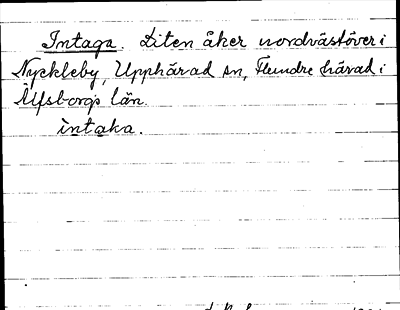 Intaga. Liten åker nordvästöver i
Nyckleby, Upphärad sn, Flundre härad i
Älfsborgs län.
intaka.